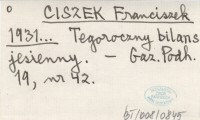 CISZEK Franciszek
1931... Tegoroczny bilans
jesienny. — Gaz. Podh.
19, nr 42.